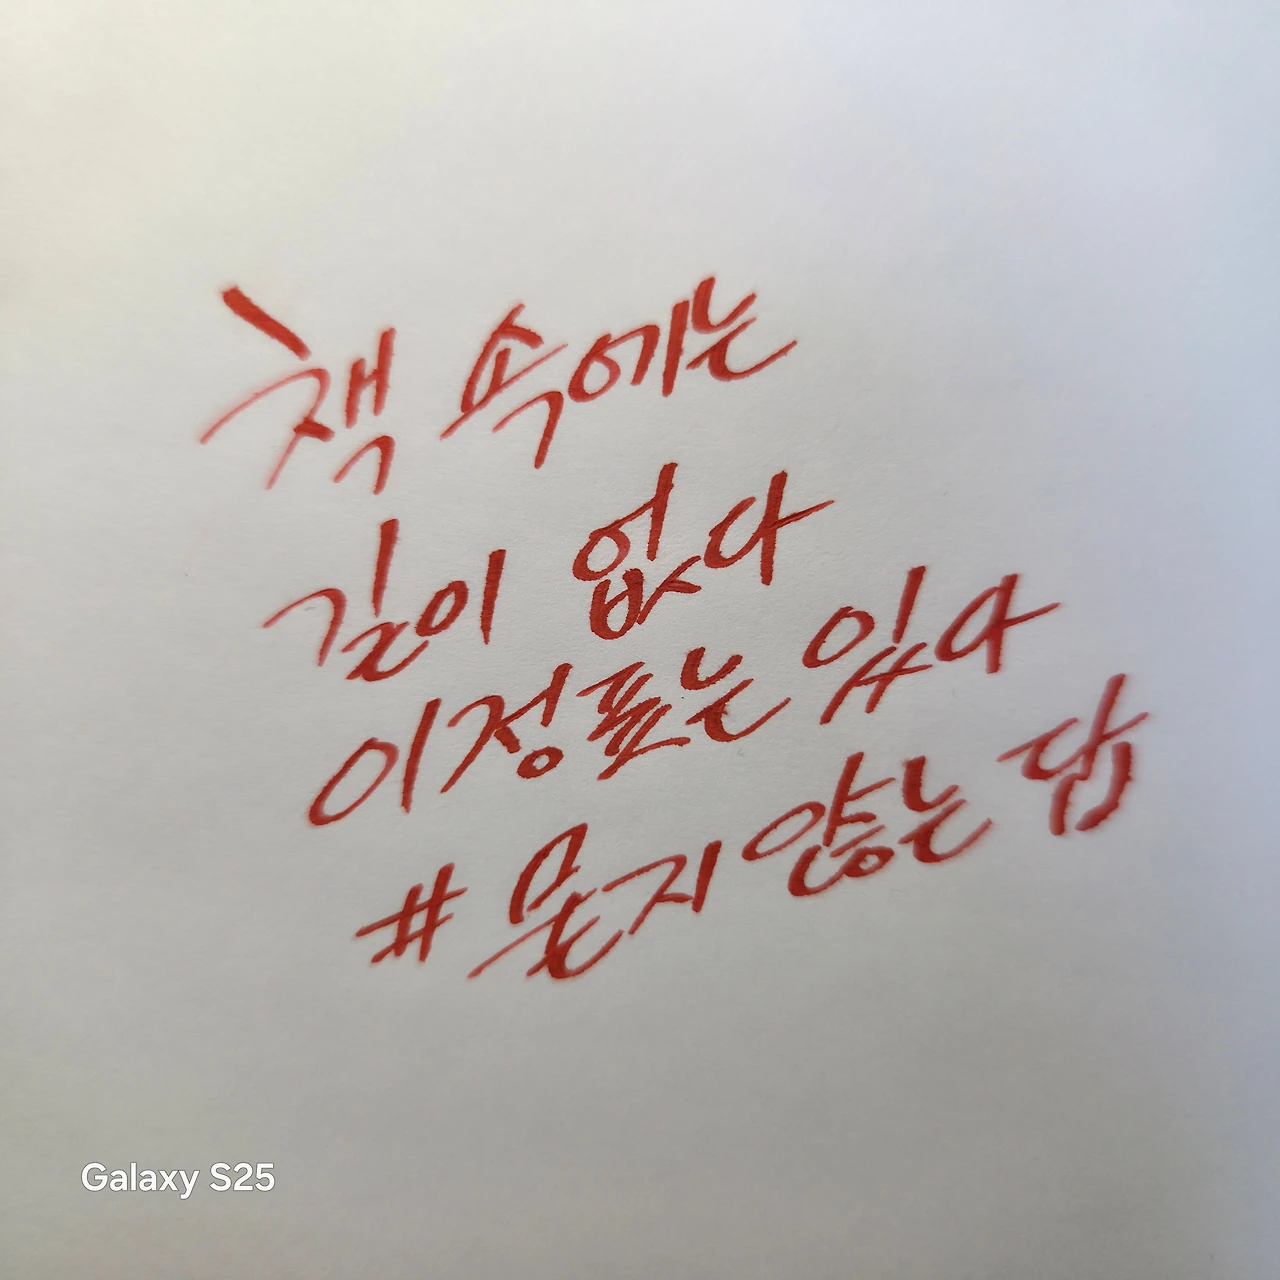 책 속에는
길이 없다
이정표는 있다
# 묻지 않는 답
Galaxy S25